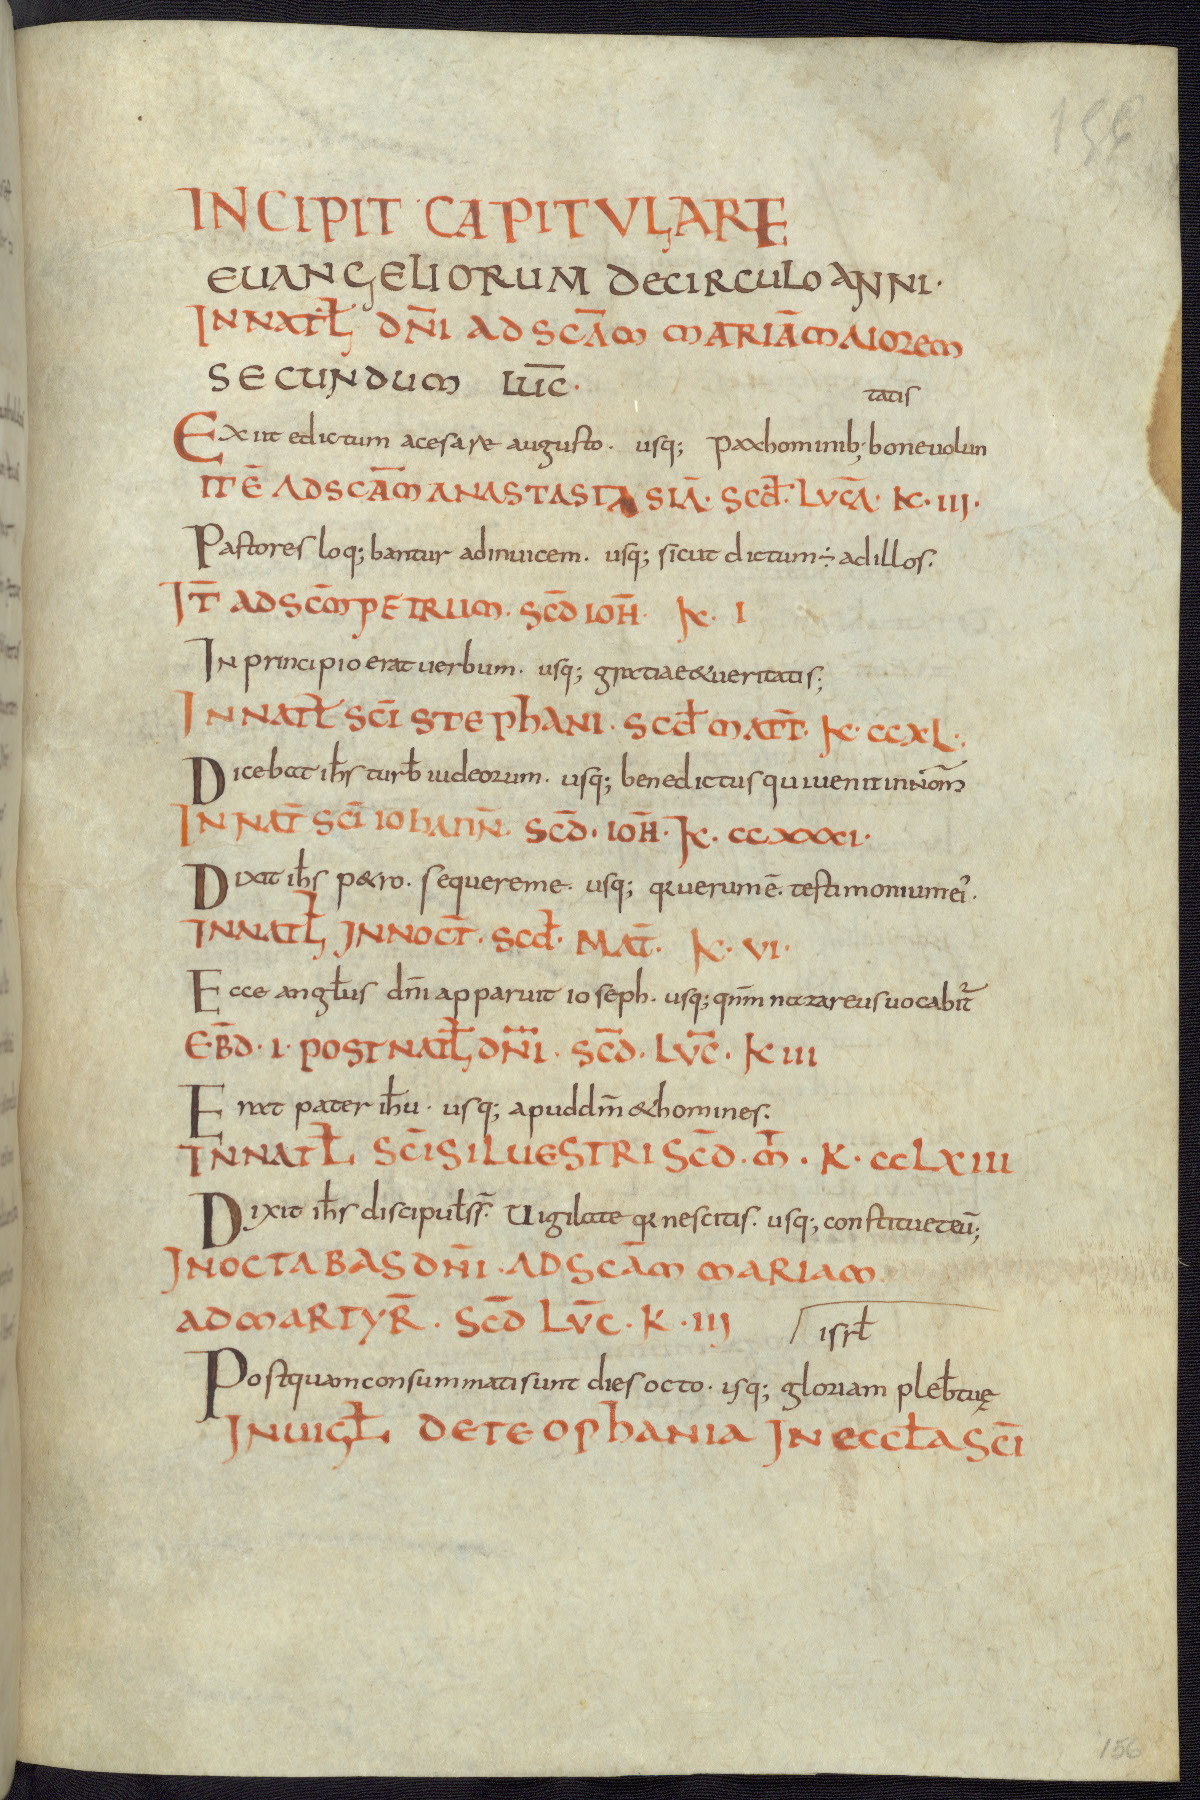 156
INCIPIT CAPITVLARE
EUANGELIORUM DECIRCULO ANNI·
INNATł DN̄I AD SCĀM MARIĀ MAIOREM
SECUNDUM LUC̄·
tatis
Exiit edictum acesare augusto· usq; paxhominib; bonevolun
ITĒ ADSCĀM ANASTASIA SIĀ· SCđ· LVCĀ· K· III·
Pastores loq;bantur adinvicem· usq; sicut dictum÷ adillos·
IT̄ ADSCM̄PETRUM· SCD̄ IOH̄· K· I
In principio erat verbum· usq; gratiae&veritatis;
INNATł SCI STEPHANI· SCđ MATT̄· K· CCXL·
Dicebat ih̄s turb̄ iudeorum· usq; benedictus qui uenit in nōm
INNAT̄ SCI IOhANN̄· SCD̄· IOH̄· K· CCXXXI·
Dixit ih̄s p&ro· sequereme· usq; qr uerum ē· testimonium ei'·
INNATł INNOCT̄· SCđ· MAT̄· K· VI·
Ecce anglus dn̄i apparuit ioseph· usq; qn̄m nazareus uocabit̄
EB̄D· I· POST NATł DN̄I· SCD̄· LVC̄· K III
Erat pater ih̄u· usq; apud dm̄ &homines·
INNATł SCI SILUESTRI SCD̄· M̄· K· CCLXIII
Dixit ih̄s discipulis s̄· Uigilate qr nescitis· usq; constituet eū;
INOCTABAS DN̄I· ADSCĀM MARIAM
ADMARTYR̄· SCD̄ LVC̄· K· III
isrł
Postquam consummati sunt dies octo· usq; gloriam pleb̄ tuę
INUIGł DETEOPHANIA IN ECCłA SCI
156